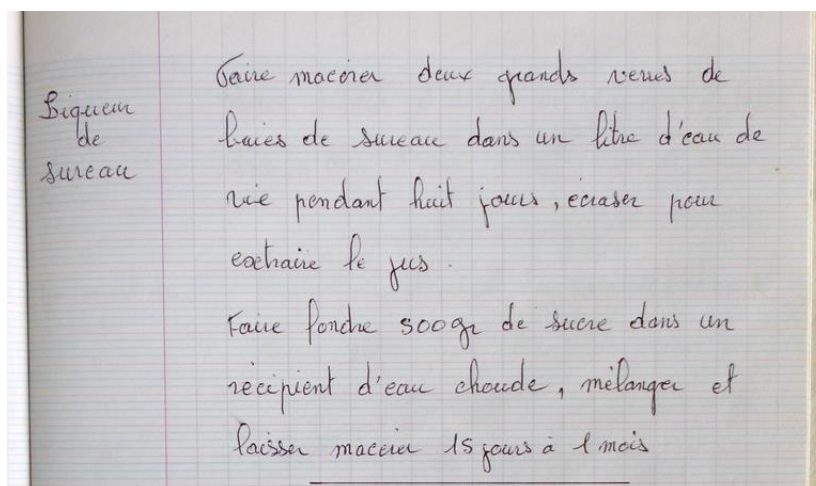 Liqueur
de
sureau
Faire macérer deux grands verres de
baies de sureau dans un litre d'eau de
vie pendant huit jours, écraser pour
extraire le jus.
Faire fondre 500gr de sucre dans un
récipient d'eau chaude, mélanger et
laisser macérer 15 jours à 1 mois